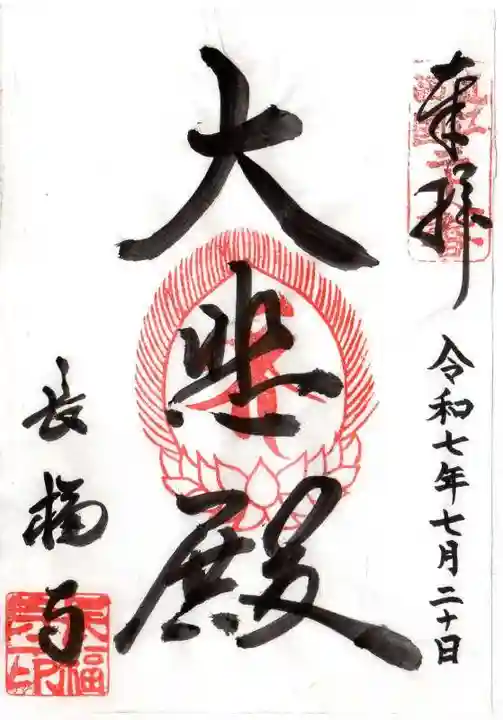 奉拝
令和七年七月二十日
大悲殿
長福寺
長福寺印